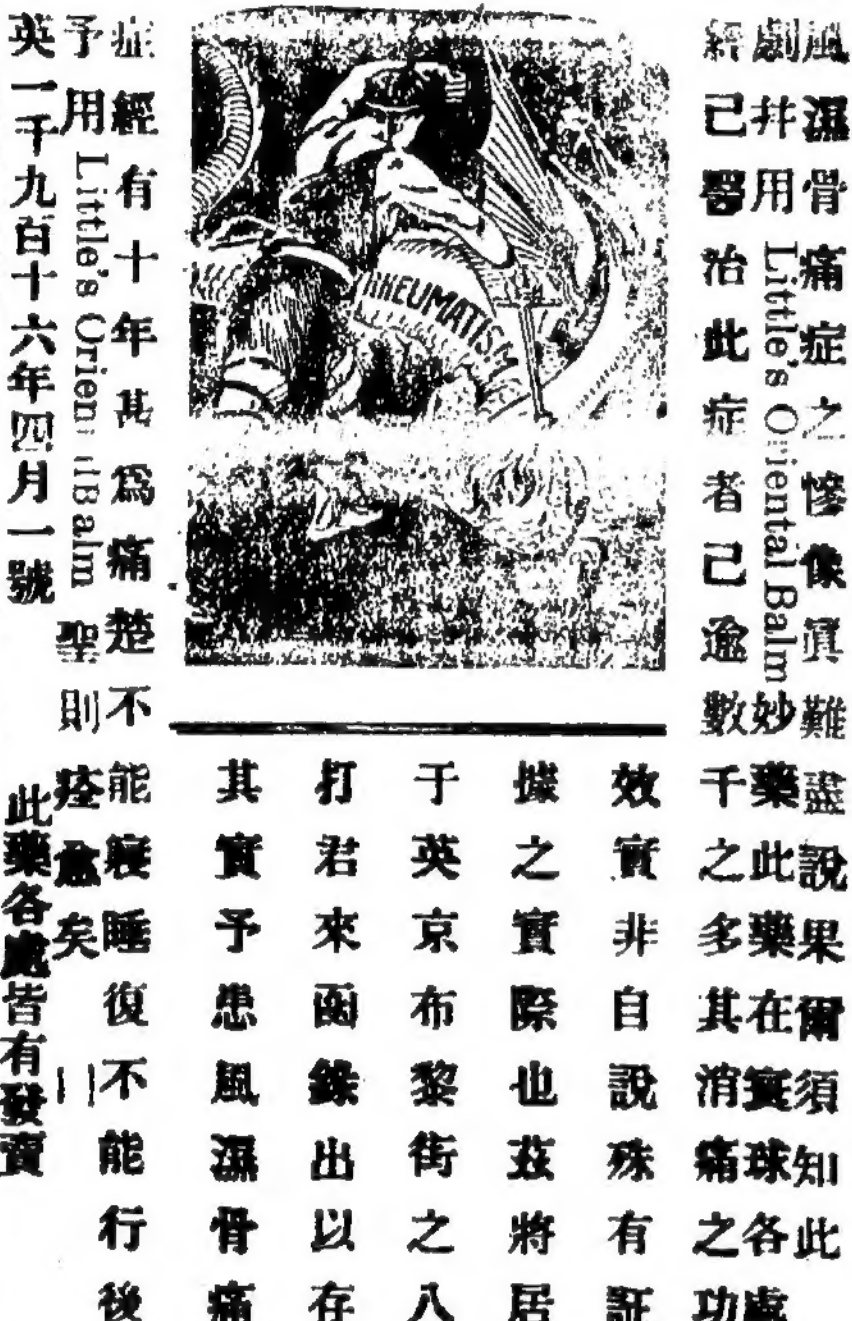 風濕骨痛症之慘像眞難盡說果爾須知此
劇井用 Little's Oriental Balm 妙藥此藥在寰球各處
經己治此症者己逾數千之多其消痛之功
效實非自說殊有証
據之實際也茲將居
于英京布黎街之八
打君來函錄出以存
其實予患風濕骨痛
RHEUMATISM
症經有十年甚爲痛楚不能寢睡復不能行後
予用 Little's Oriental Balm 聖則痊愈矣
英一千九百十六年四月一號
此藥各處皆有發賣